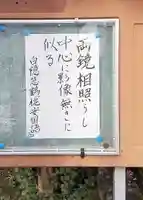 両鏡相照らし
中心に影像無きに
似る
白隠慧鶴禅師語